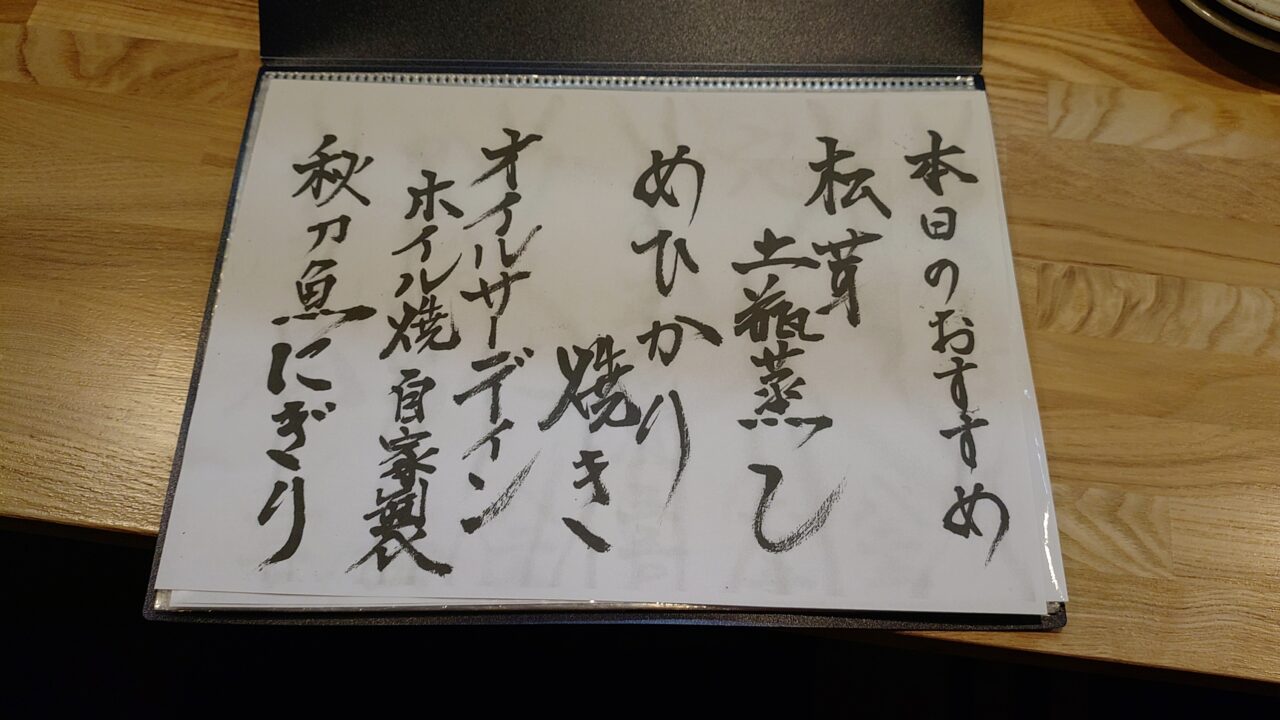 本日のおすすめ
松茸
土瓶蒸し
めひかり
焼き
オイルサーディン
ホイル焼 自家製
秋刀魚にぎり